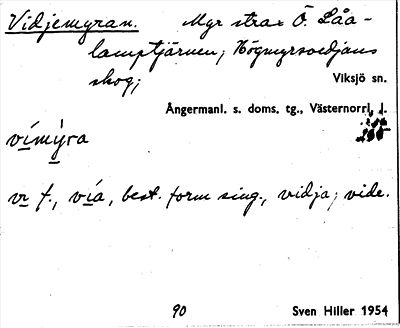 Vidjemyran. Myr strax Ö. Låa-
lamptjärnen; Högmyrsvedjans
skog; Viksjö sn.
Ångermanl. s. doms. tg., Västernorrl. l.
vímýra
vı f., vía, best. form sing., vidja; vide.
90 Sven Hiller 1954